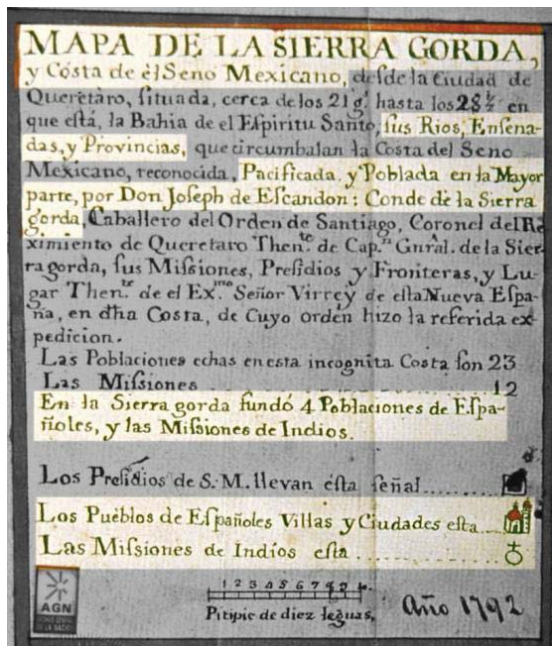 MAPA DE LA SIERRA GORDA,
y Cósta de èl Seno Mexicano, desde la Ciudad de
Queretàro, situada, cerca de los 21 g.ˢ hasta los 28½ en
que està, la Bahia de el Espiritu Santo, sus Rios, Ensena-
das, y Provincias, que circumbalan la Costa del Seno
Mexicano, reconocida, Pacificada, y Poblada en la Mayor
parte, por Don Joseph de Escandon: Conde de la Sierra
gorda, Caballero del Orden de Santiago, Coronel del Re
ximiento de Queretaro Then.ᵗᵉ de Cap.ⁿ Gnŕal. de la Sier-
ra gorda, sus Missiones, Presidios y Fronteras, y Lu-
gar Then.ᵗᵉ de el Ex.ᵐᵒ Señor Virrey de esta Nueva Espa-
ña, en dħa Costa, de Cuyo orden hizo la referida ex-
pedicion.
Las Poblaciones echas en esta incognita Costa son 23
Las Missiones 12
En la Sierra gorda fundó 4 Poblaciones de Espa-
ñoles, y las Missiones de Indios.
Los Presidios de S. M. llevan èsta señal
Los Puèblos de Españoles Villas y Ciudades esta
Las Missiones de Indios esta
1 2 3 4 5 6 7 8 9 10
Pitipie de diez leguas,
Año 1792
AGN